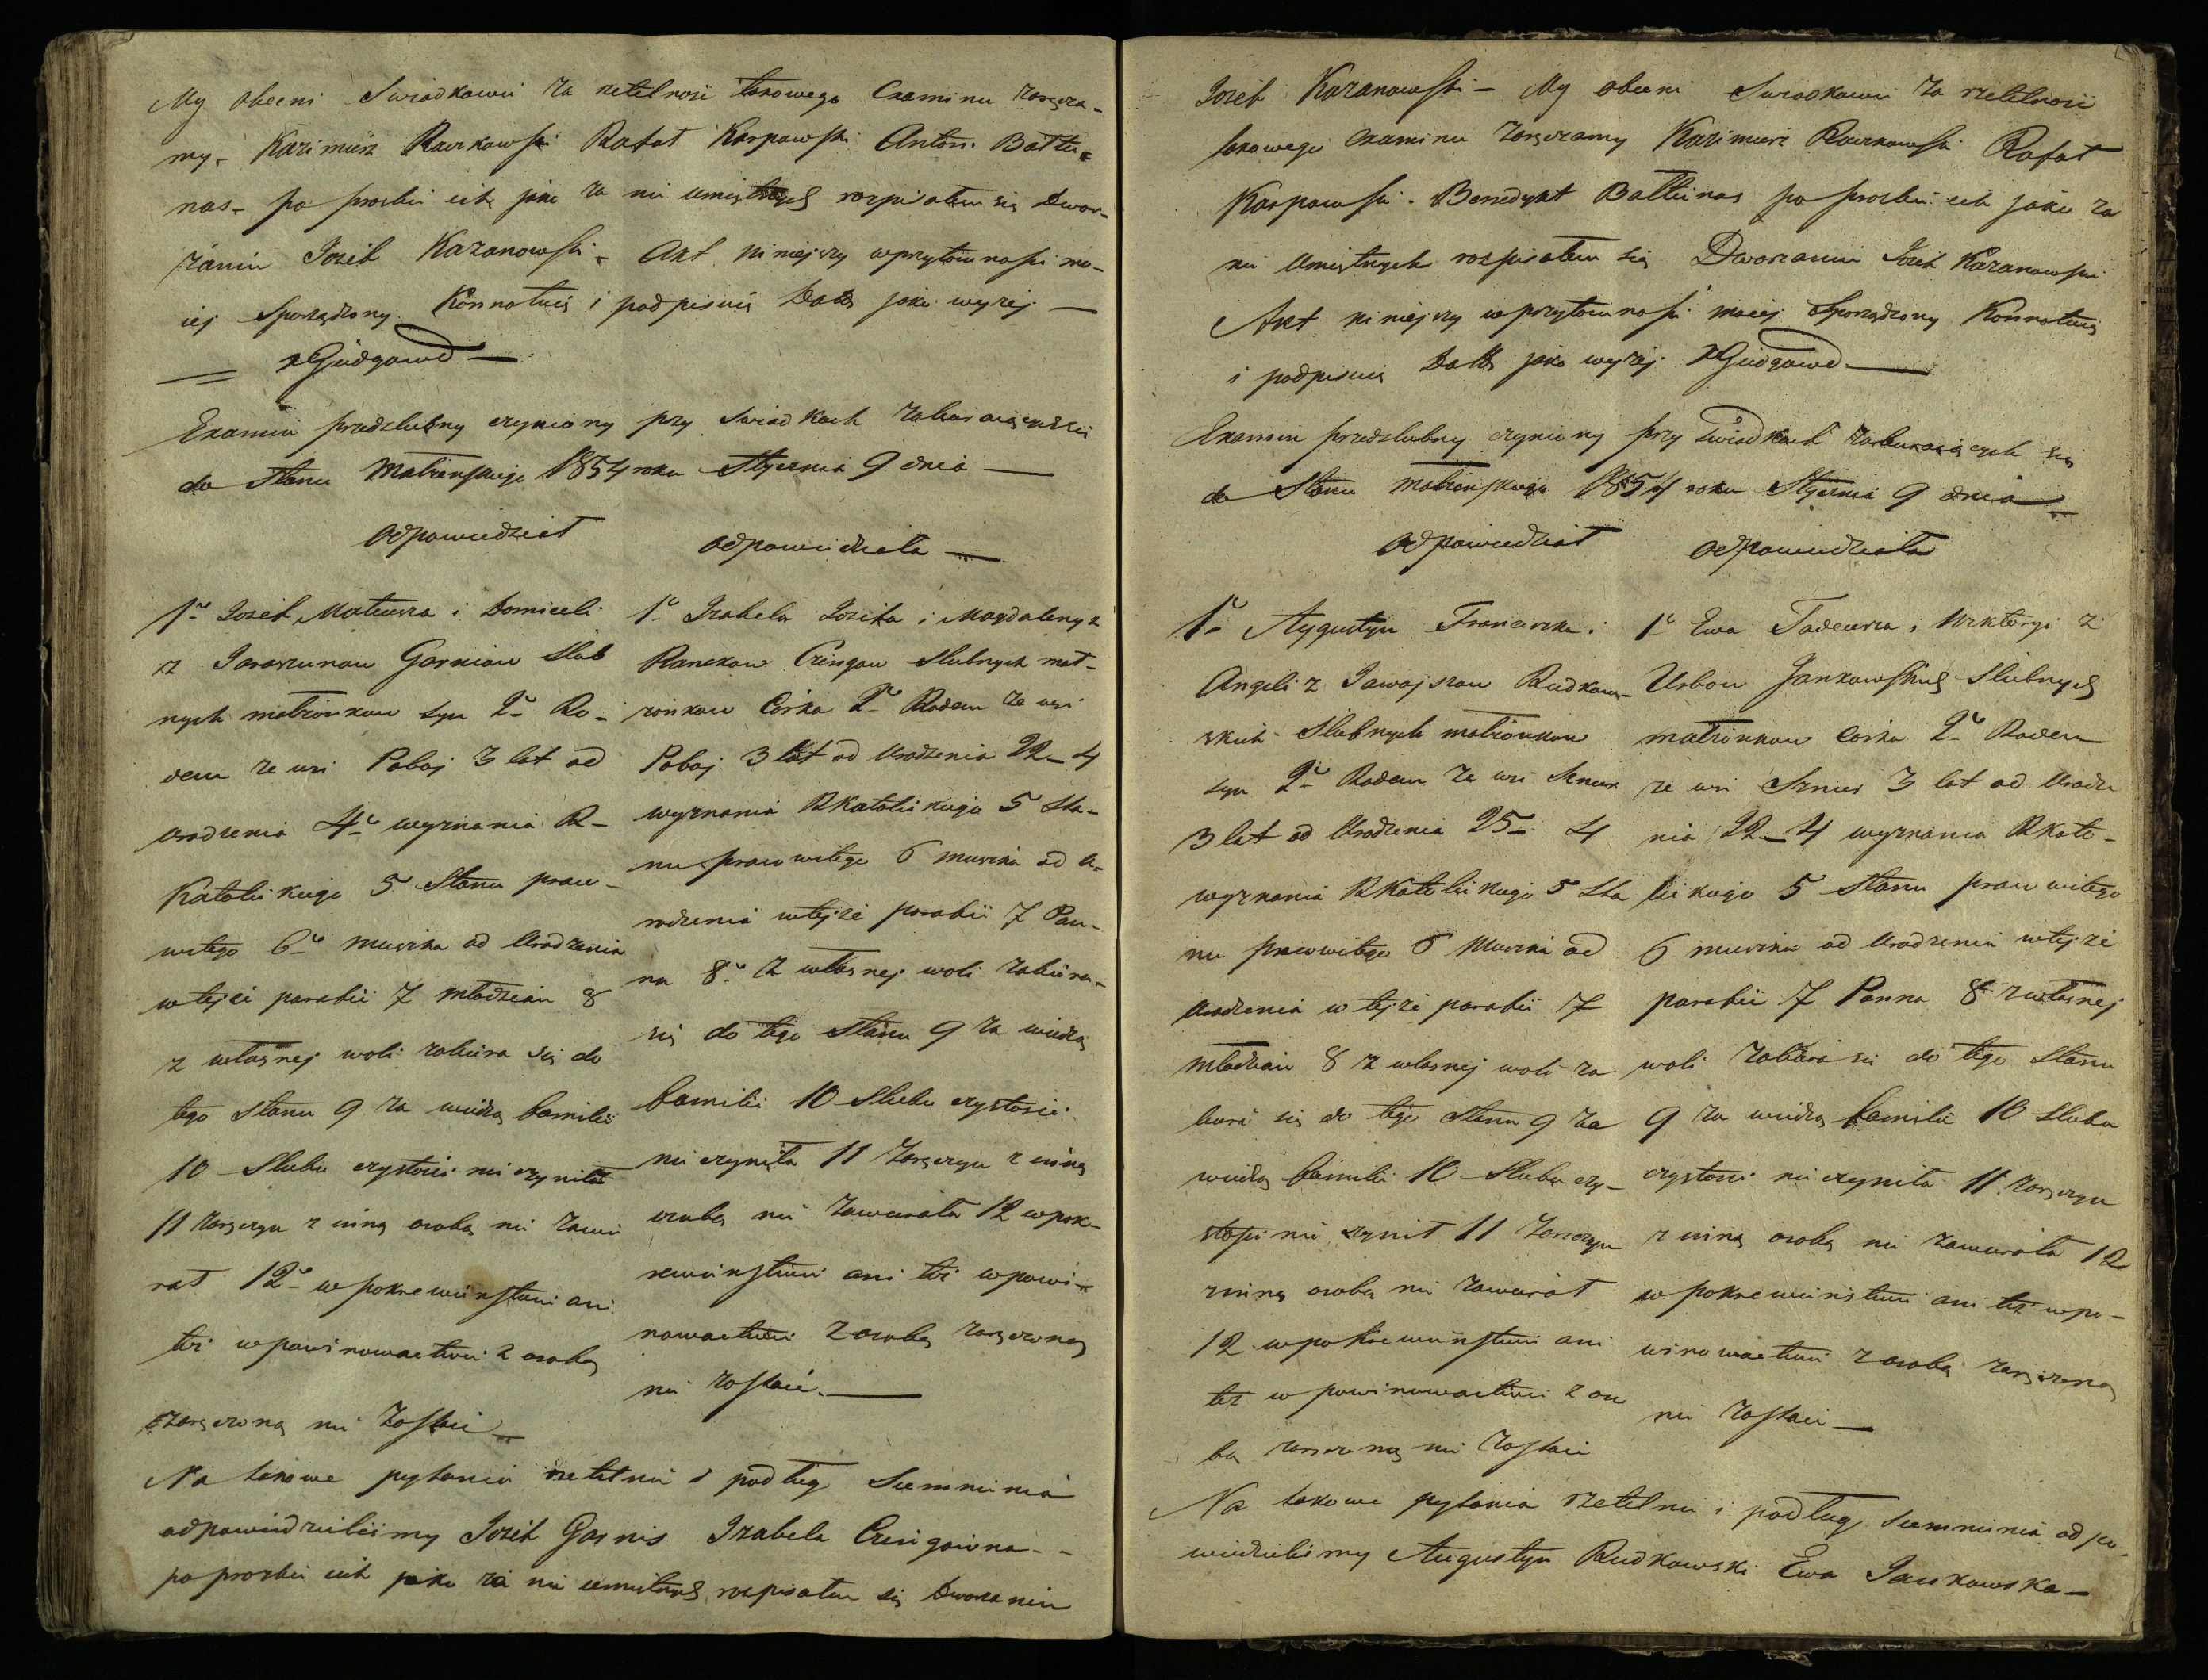 My obecni Swiadkowie za rzetelnosc takowego Examinu zaręcza-
my. Kazimierz Raczkowski Rafał Karpowski Antoni Bałtu-
nas. po prozbie ich jako za nie umiętnych rozpisałem się Dwor-
zanin Jozef Kazanowski. Akt niniejszy w przytomnosci mo-
iej sporządzony. Konnotuię i podpisuię Datt jako wyzej —
Examin przedslubny czyniony przy swiadkach zabierających się
do stanu małzenskiego 1854 roku Stycznia 9 dnia —
odpowiedział odpowiedziała —
1o Jozef Mateusza i Domiceli
z Jaraszunow Garniow slub
nych małzonkow syn 2o Ro-
dem ze wsi Pobaj 3 lat od
urodzenia 4o wyznania R-
Katolickiego 5 Stanu praco-
witego 6o muszka od urodzenia
w tejze parafii 7 młodzian 8
z własnej woli zabiera się do
tego stanu 9 za wiedzą familii
10 Slubu czystosci nie czynił
11 zaręczyn z inną osobą nie zawie
rał 12o w pokrewienstwie ani
tez w powinowactwie z osobą
zaręczoną nie zostaie —
1o Izabela Jozefa i Magdaleny z
Ranckow Czingow slubnych mał-
zonkow Corka 2o Rodem ze wsi
Pobaj 3 lat od urodzenia 22 – 4
wyznania RKatolickiego 5 Sta-
nu pracowitego 6 muszka od u-
rodzenia w tejze parafii 7 Pan-
na 8o z własnej woli zabiera-
się do tego stanu 9 za wiedzą
familii 10 Slubu czystosci
nie czyniła 11 zaręczyn z inną
osobą nie zawierała 12 w pok-
rewienstwie ani tez w powi-
nowactwie z osobą zaręczoną
nie zostaie. —
Na takowe pytania rzetelnie i podług sumnienia
odpowiedzielismy Jozef Garnis Izabela Czingowna - -
po prozbie ich jako za nie umiętnych rozpisałem się Dworzanin
Jozef Kazanowski – My obecni Swiadkowie za rzetelnosc
takowego examinu zaręczamy Kazimierz Raczkowski Rafał
Karpowski. Benedykt Bałtunas po prozbie ich jako za
nie umiętnych rozpisałem się Dworzanin Jozef Kazanowski
Akt niniejszy w przytomnosci moiej sporządzony Konnotuię
i podpisuię Datt jako wyzej
Examin przedslubny czyniony przy swiadkach zabierających się
do Stanu małzenskiego 1854 roku Stycznia 9 dnia —
odpowiedział odpowiedziała
1o Augustyn Franciszka i
Angeli z Jawojszow Rudkow-
skich Slubnych małzonkow
syn 2o Rodem ze wsi Sznur
3 lat od urodzenia 25 – 4
wyznania RKatolickiego 5 Sta
nu pracowitego 6 muszka od
urodzenia w tejze parafii 7
młodzian 8 z własnej woli za
biera się do tego stanu 9 za
wiedzą familii 10 Slubu czy-
stosci nie czynił 11 zaręczyn
z inną osobą nie zawierał
12 w pokrewienstwie ani
tez w powinowactwie z oso
bą zaręczoną nie zostaie
1o Ewa Tadeusza i Wiktoryi z
Urbow Jankowskich Slubnych
małzonkow Corka 2o Rodem
ze wsi Sznur 3 lat od urodze
nia 22 – 4 wyznania RKato-
lickiego 5 Stanu pracowitego
6 muszka od urodzenia w tejze
parafii 7 Panna 8o z własnej
woli zabiera się do tego stanu
9 za wiedzą familii 10 Slubu
czystosci nie czyniła 11 zaręczyn
z inną osobą nie zawierała 12
w pokrewienstwie ani tez w po-
winowactwie z osobą zaręczoną
nie zostaie —
Na takowe pytania rzetelnie i podług sumnienia odpo-
wiedzielismy Augustyn Rudkowski Ewa Jankowska —